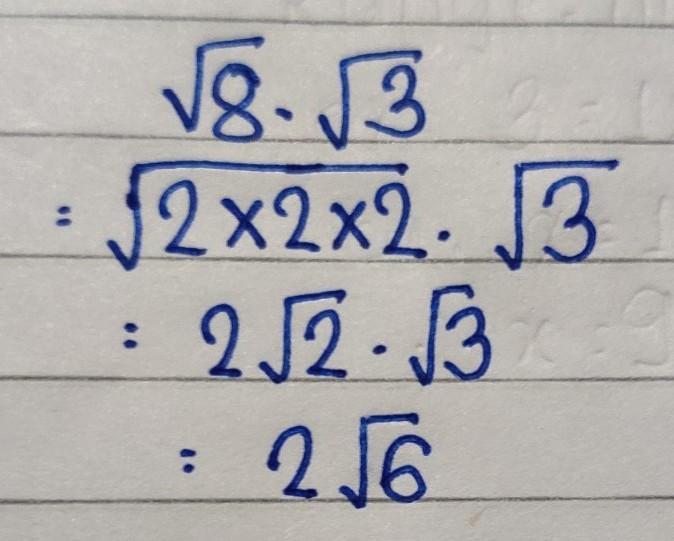 √8 · √3
= √2×2×2 · √3
= 2√2 · √3
= 2√6